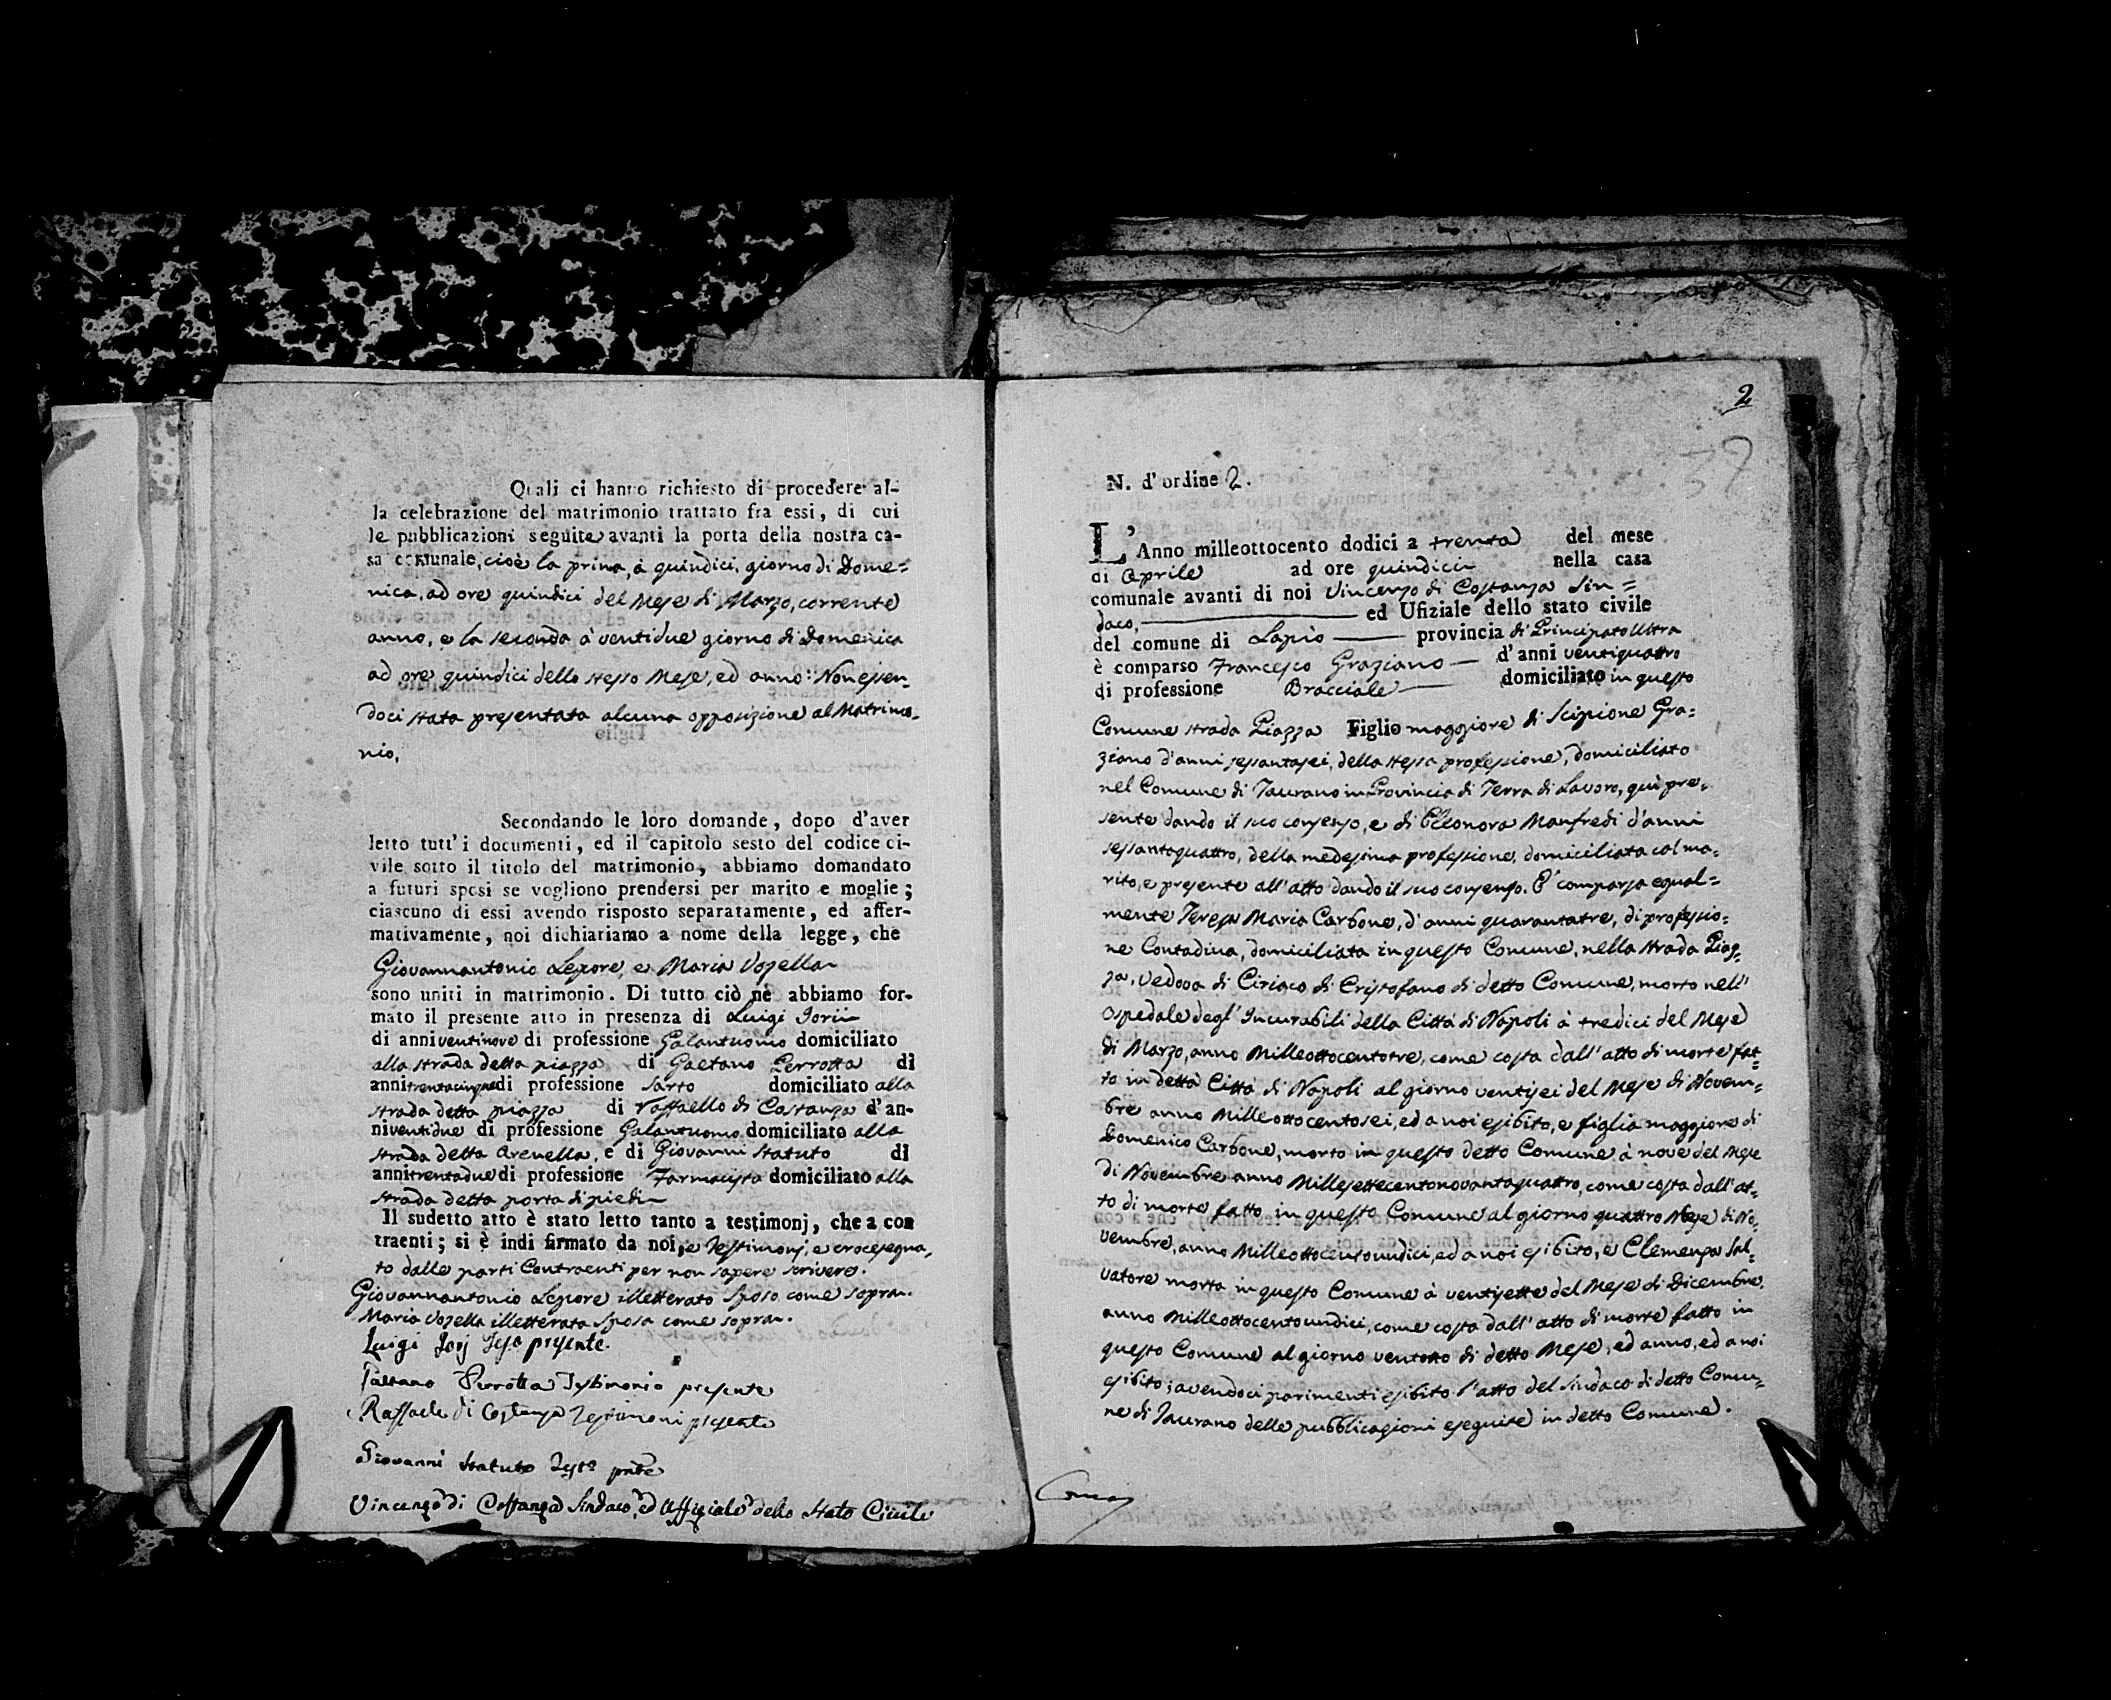 Quali ci hanno richiesto di procedere al-
la celebrazione del matrimonio trattato fra essi, di cui
le pubblicazioni seguite avanti la porta della nostra ca-
sa comunale, cioè la prima, à quindici, giorno di Dome=
nica, ad ore quindici del Mese di Marzo, corrente
anno, e la seconda à ventidue giorno di Domenica
ad ore quindici dello stesso Mese, ed anno: Non essen-
doci stata presentata alcuna opposizione al Matrimo-
nio,
Secondando le loro domande, dopo d'aver
letto tutt'i documenti, ed il capitolo sesto del codice ci-
vile sotto il titolo del matrimonio, abbiamo domandato
a futuri sposi se vogliono prendersi per marito e moglie;
ciascuno di essi avendo risposto separatamente, ed affer-
mativamente, noi dichiariamo a nome della legge, che
Giovannantonio Lepore, e Maria Vozella
sono uniti in matrimonio. Di tutto ciò nè abbiamo for-
mato il presente atto in presenza di Luigi Iorii
di anni ventinove di professione Galantuomo domiciliato
alla strada detta piazza di Gaetano Perrotta di
anni trentacinque di professione Sarto domiciliato alla
strada detta piazza di Raffaello di Costanza d'an-
ni ventidue di professione Galantuomo domiciliato alla
strada detta Arenella, e di Giovanni Statuto di
anni trentadue di professione Farmacista domiciliato alla
strada detta porta di piedi
Il sudetto atto è stato letto tanto a testimonj, che a con
traenti; si è indi firmato da noi, e Testimonj, e crocesegna-
to dalle parti Contraenti per non sapere scrivere.
Giovannantonio Lepore illetterato Sposo come sopra.
Maria Vozella illetterata Sposa come sopra.
Luigi Iorj Teso presente.
Gaitano Perrotta Testimonio presente
Raffaele di Costanza Testimoni presente
Giovanni Statuto Testo pnte
Vincenzo di Costanza Sindaco, ed Uffiziale dello Stato Civile
2
39
N. d'ordine 2.
L'Anno milleottocento dodici a trenta del mese
di Aprile ad ore quindici nella casa
comunale avanti di noi Vincenzo di Costanza Sin=
daco, ed Ufiziale dello stato civile
del comune di Lapio provincia di Principato Ultra
è comparso Francesco Graziano d'anni ventiquattro
di professione Bracciale domiciliato in questo
Comune strada Piazza Figlio maggiore di Scipione Gra=
ziano d'anni sessantasei, della stessa professione, domiciliato
nel Comune di Taurano in Provincia di Terra di Lavoro, quì pre-
sente dando il suo consenso, e di Eleonora Manfredi d'anni
sessantaquattro, della medesima professione, domiciliata col ma-
rito, e presente all'atto dando il suo consenso. E' comparsa egual=
mente Teresa Maria Carbone, d'anni quarantatre, di professio=
ne Contadina, domiciliata in questo Comune, nella strada Piaz-
za, Vedova di Ciriaco di Cristofano di detto Comune, morto nell'
Ospedale degl'Incurabili della Città di Napoli à tredici del Mese
di Marzo, anno Milleottocentotre, come costa dall'atto di morte fat-
to in detta Città di Napoli al giorno ventisei del Mese di Novem-
bre anno Milleottocentosei, ed a noi esibito, e figlia maggiore di
Domenico Carbone, morto in questo detto Comune à nove del Mese
di Novembre anno Millesettecentonovantaquattro, come costa dall'at-
to di morte fatto in questo Comune al giorno quattro Mese di No-
vembre, anno Milleottocentoundici, ed a noi esibito, e Clemenza Sal-
vatore morta in questo Comune à ventisette del Mese di Dicembre,
anno Milleottocentoundici, come costa dall'atto di morte fatto in
questo Comune al giorno ventotto di detto Mese, ed anno, ed a noi
esibito; avendoci parimenti esibito l'atto del Sindaco di detto Comu-
ne di Taurano delle pubblicazioni eseguite in detto Comune.